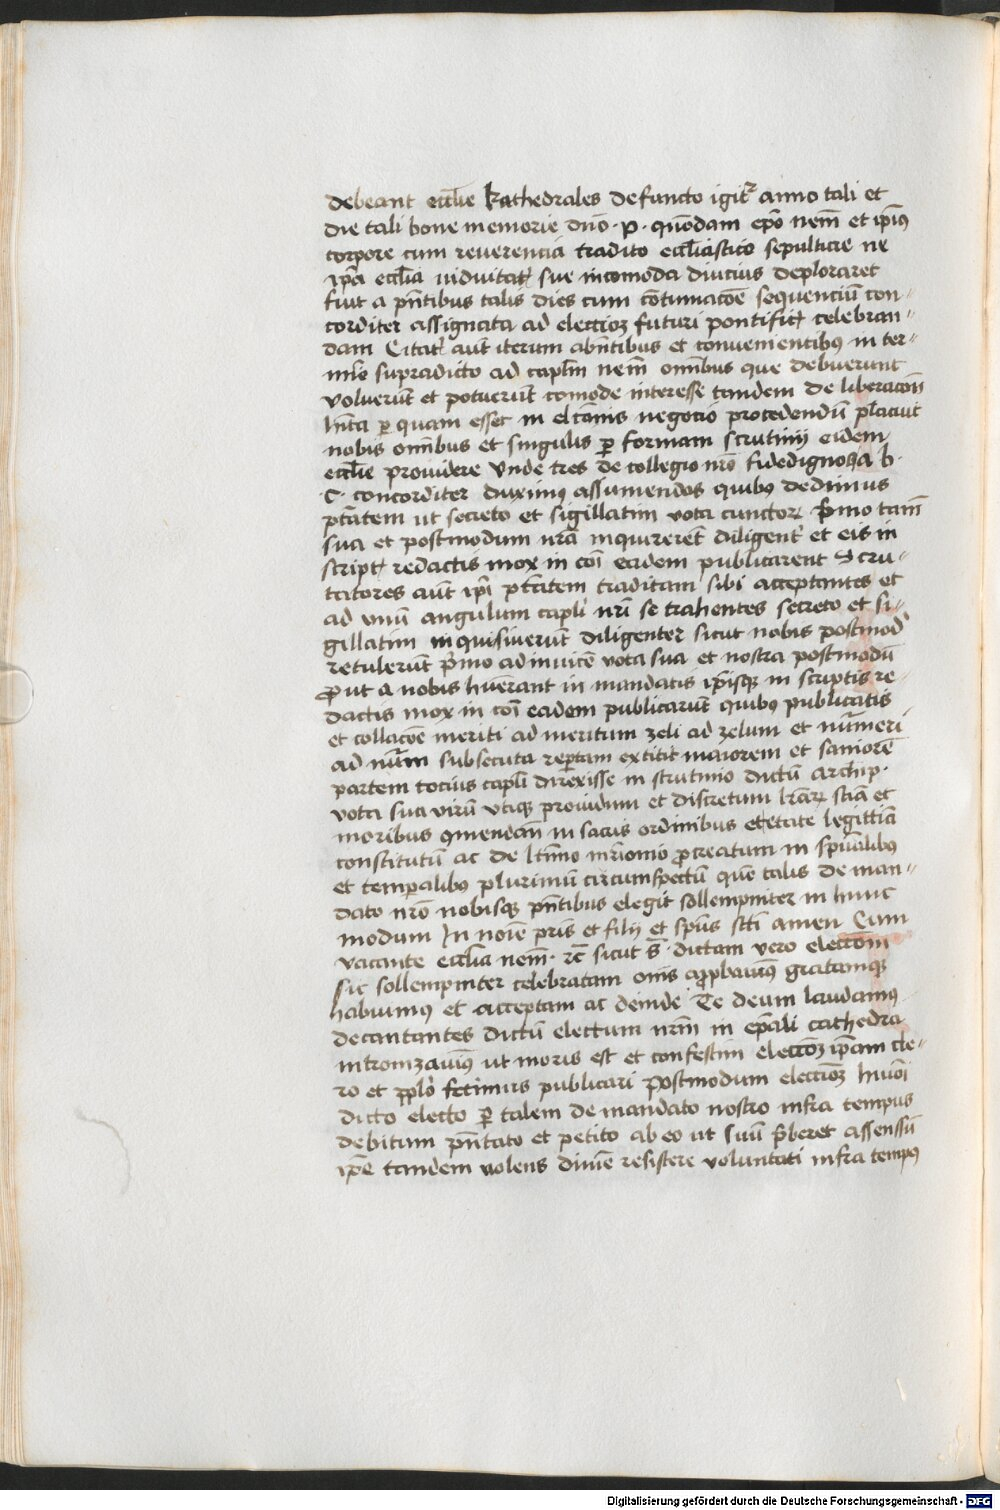 debeant eccl̄ie kathedrales defuncto igit᷑ anno tali et
die tali bone memorie dn̄o · p · quōdam ep̄o nem̄ et ip̄ius
corpore cum reuerencia tradito eccl̄iastice sepulture ne
ip̄a eccl̄ia viduitatꝭ sue incomoda diucius deploraret
fuit a pn̄tibus talis dies cum cōtinuacōe sequenciū con-
corditer assignata ad eleccōꝫ futuri pontificꝭ celebran-
dam Citatꝭ aūt iterum abn̄tibus et convenientibꝰ in ter-
mīo supradicto ad capl̄m nem̄ om̄ibus que debuerunt
voluerūt et potuerūt comode interesse tandem deliberacōn
hīta ꝑ quam esset in elcōnis negocio procedendū placuit
nobis om̄ibus et singulis ꝑ formam scrutinij eidem
eccl̄ie prouidere Vnde tres de collegio nr̄o fidedignos a b ·
c · concorditer duximꝰ assumendos quibꝰ dedimus
ptātem ut secreto et sigillatim vota cunctoꝝ p̄mo tam̄
sua et postmodum nr̄a inquirerēt diligent᷑ et eis in
scriptꝭ redactis mox in cōi eadem publicarent Scru-
tatores aūt ip̄i ptātem traditam sibi acceptantes et
ad vnū angulum capl̄i nr̄i se trahentes secreto et si-
gillatim inquisiuerūt diligenter sicut nobis postmod̄
retulerūt p̄mo adinuicē vota sua et nostra postmodū
ꝓut a nobis huērant in mandatis ip̄isqꝫ in scriptis re-
dactis mox in cōi eadem publicarūt quibꝰ publicatis
et collacōe meriti ad meritum zeli ad zelum et nūmeri
ad nūm subsecuta rep̄tam extitit maiorem et saniorē
partem tocius capl̄i direxisse in scrutinio dictū archip̄ ·
vota sua virū vtiqꝫ prouidum et discretum lr̄aꝝ sciā et
moribus ꝯmendān in sacris ordinibus et etate legittīa
constitutū ac de ltīmo mr̄ionio ꝓcreatum in sp̄ualibꝰ
et temp̄alibꝰ plurimū circumspectū quē talis de man-
dato nr̄o nobisqꝫ pn̄tibus elegit sollempniter in hunc
modum In noīe pr̄is et filij et sp̄us scī amen Cum
vacante eccl̄ia nem̄ · rc̄ sicut s̄ · dictam vero eleccōm
sic sollempniter celebratam om̄s apꝓbauimꝰ gratamqꝫ
habuimꝰ et acceptam ac deinde Te deum laudamꝰ
decantantes dictū electum nr̄m in ep̄ali cathedra
intronizauimꝰ ut moris est et confestim eleccōꝫ ip̄am cle-
ro et pp̄lo fecimus publicari Postmodum eleccōꝫ huiōi
dicto electo ꝑ talem de mandato nostro infra tempus
debitum pn̄tato et petito ab eo ut suū p̄beret assensū
ip̄e tandem nolens diuīe resistere voluntati infra tempꝰ
Digitalisierung gefördert durch die Deutsche Forschungsgemeinschaft - DFG